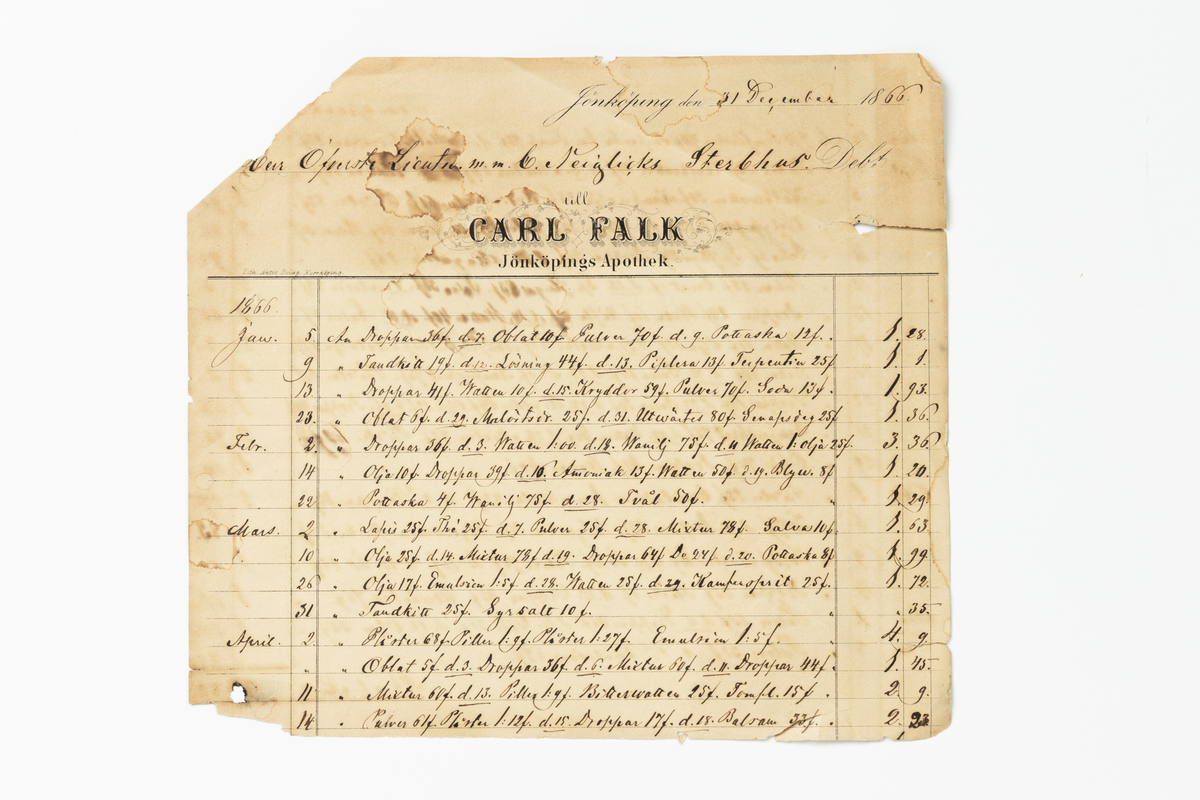 Jönköping den 31 December 1866.
Herr Öfverste Lieuten. m. m. C. Neiglicks Sterbhus. Debt
till
CARL FALK
Jönköpings Apothek.
Lith. Aktie Bolag, Norrköping
1866.
Janu. 5. An Droppar 36f. d. 7. Oblat 10f Pulver 70f. d. 9. Pottaska 12f. 1. 28.
9 " Tandkitt 19f. d. 12. Lösning 44f. d. 13. Piplera 13f Terpentin 25f 1. 1.
13 " Droppar 41f. Watten 10f. d. 15. Kryddor 59f. Pulver 70f. Soda 13f. 1. 93.
23. " Oblat 6f. d. 29. 25f. d. 31. Utwärtes 80f. Senapsdeg 25f 1. 36.
Febr. 2. " Droppar 36f. d. 3. Watten 1:00 d. 12. Wanilj 75f. d. 11 Watten 1: Olja 25f. 3. 36
14 " Olja 10f. Droppar 39f. d. 16. Amoniak 13f. Watten 50f. d. 19. Blyw. 8f 1. 20.
22 " Pottaska 4f. Wanilj 75f. d. 28. Tvål 50f. " 1. 29.
Mars. 2 " Lapis 25f. Thé 25f. d. 7. Pulver 25f. d. 28. Mixtur 78f. Salva 10f. 1. 63.
10 " Olja 25f. d. 14. Mixtur 78f d. 19. Droppar 64f Do 24f. d. 20. Pottaska 8f 1. 99.
26 " Olja 17f. Emulsion 1:5f d. 28. Watten 25f. d. 29. Kampersprit 25f. 1. 72.
31 " Tandkitt 25f. Syrsalt 10f. " " 35.
April. 2. " Plåster 68f. Piller 1:9f. Plåster 1:27f. Emulsion 1:5f. 4. 9.
" " Oblat 5f. d. 3. Droppar 36f. d. 6. Mixtur 60f. d. 11. Droppar 44f. 1. 45.
11 " Mixtur 60f. d. 13. Piller 1:9f. Bitterwatten 25f. 15f. 2. 9.
14 " Pulver 61f. Plåster 1:12f. d. 15. Droppar 17f. d. 18. Balsam 33f. 2. 23